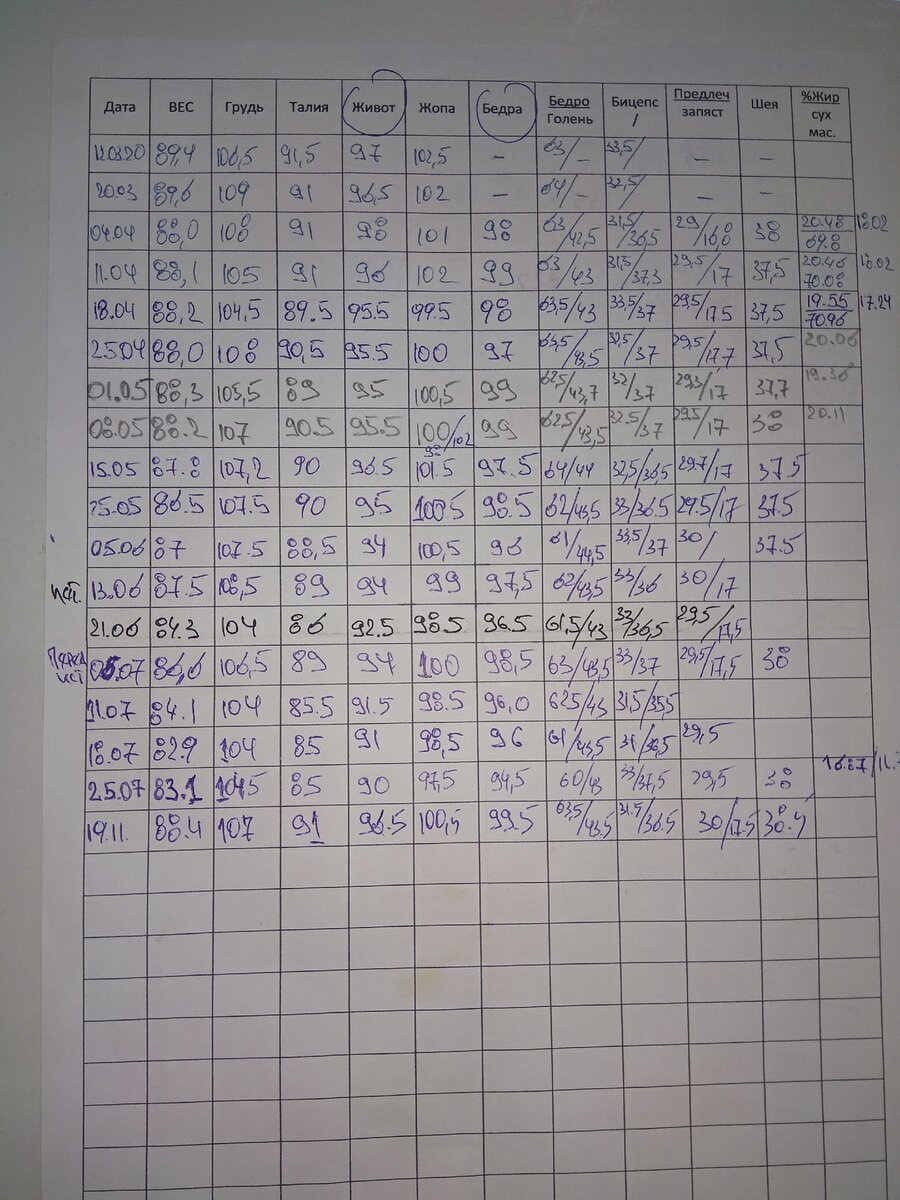 Дата ВЕС Грудь Талия Живот Жопа Бедра Бедро Голень Бицепс / Предлеч запяст Шея %Жир сух мас.
12.03.20 89,4 106,5 91,5 97 102,5 – 63/– 33,5/ – –
20.03 89,6 109 91 96,5 102 – 64/– 32,5/ – –
04.04 88,0 108 91 98 101 98 63/42,5 31,5/36,5 29/16,8 38 20.48/69.8 18.02
11.04 88,1 105 91 96 102 99 63/43 31,5/37,3 29.5/17 37,5 20.46 70.08 18.02
18.04 88,2 104,5 89.5 95.5 99.5 98 63,5/43 33,5/37 29,5/17.5 37,5 19.55/70.96 17.24
25.04 88,0 108 90,5 95.5 100 97 63,5/43,5 32,5/37 29,5/17,7 37,5 20.06
01.05 88,3 105,5 89 95 100,5 99 62,5/43,7 32/37 29,3/17 37,7 19.36
08.05 88.2 107 90.5 95.5 100/102 99 62,5/43,5 32.5/37 29,5/17 38 20.11
15.05 87.8 107,2 90 96.5 101.5 97.5 64/44 32,5/36,5 29.7/17 37.5
25.05 86.5 107.5 90 95 100.5 98.5 62/43,5 33/36.5 29.5/17 37.5
05.06 87 107.5 88,5 94 100,5 96 61/44,5 33,5/37 30/ 37.5
13.06 87.5 106,5 89 94 99 97,5 62/43,5 33/36 30/17
21.06 84.3 104 86 92.5 98.5 96.5 61,5/43 32/36,5 29,5/17,5
05.07 86,6 106,5 89 94 100 98,5 63/43,5 33/37 29,5/17,5 38
11.07 84.1 104 85.5 91.5 98.5 96,0 62.5/43 31.5/35,5
18.07 82.9 104 85 91 98,5 96 61/43,5 31/36,5 29,5
25.07 83.1 104.5 85 90 97,5 94,5 60/43 33/37,5 29,5 38 16.87
19.11. 88.4 107 91 96.5 100,5 99.5 63,5/43.5 31.5/36.5 30/17.5 38.5